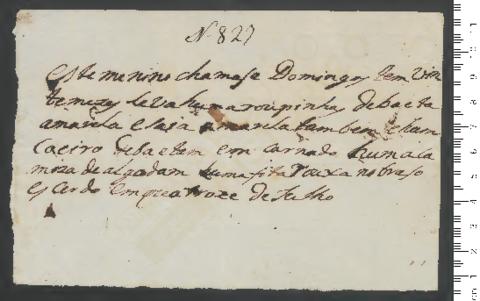 N 827
este menino chamase Domingos tem vin
te mezes leva huma roupinha de baeta
amarela e saia amarela tambem e hum
coeiro de baeta em carnado huma ca
miza de algodam huma fita Roixa no braso
esCerdo em quatroze de Julho